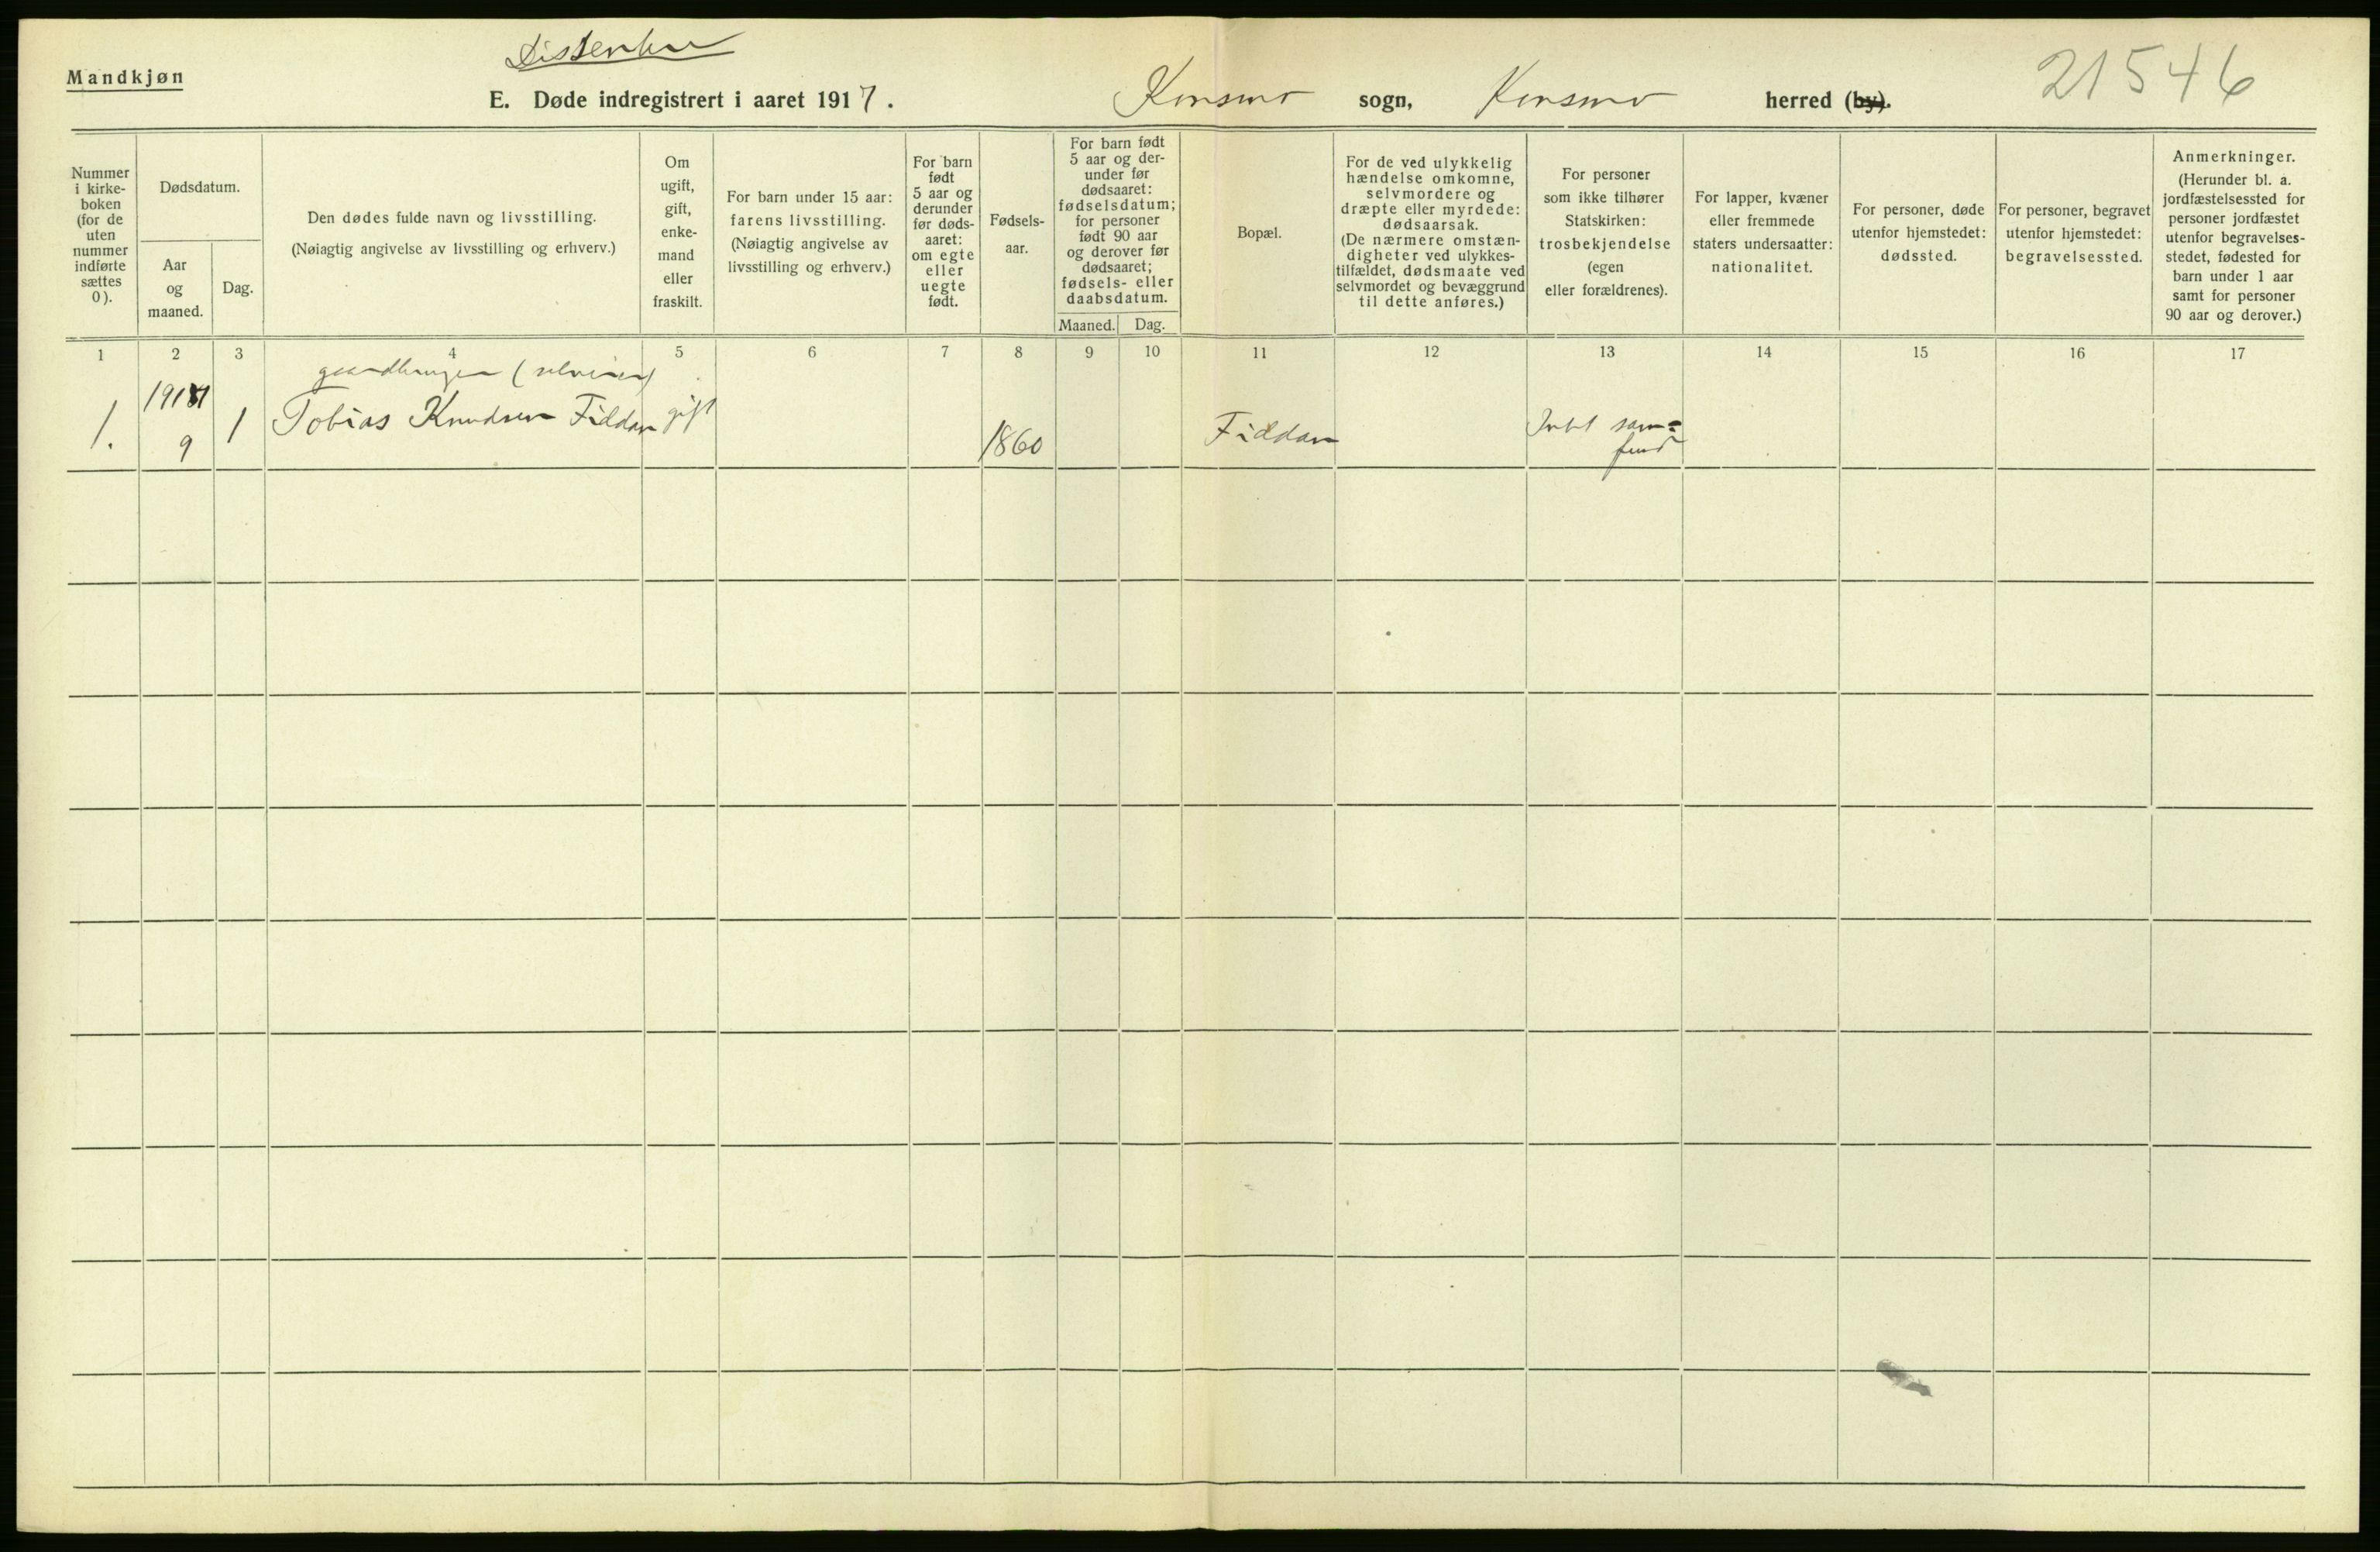 Dissenter
Mandkjøn
E. Døde indregistrert i aaret 1917.
Konsmo sogn, Konsmo herred (by).
21546
Nummer
i kirke-
boken
(for de
uten
nummer
indførte
sættes
0).
Dødsdatum.
Aar
og
maaned.
Dag.
Den dødes fulde navn og livsstilling.
(Nøiagtig angivelse av livsstilling og erhverv.)
Om
ugift,
gift,
enke-
mand
eller
fraskilt.
For barn under 15 aar:
farens livsstilling.
(Nøiagtig angivelse av
livsstilling og erhverv.)
For barn
født
5 aar og
derunder
før døds-
aaret:
om egte
eller
uegte
født.
Fødsels-
aar.
For barn født
5 aar og der-
under før
dødsaaret:
fødselsdatum;
for personer
født 90 aar
og derover før
dødsaaret;
fødsels- eller
daabsdatum.
Maaned. Dag.
Bopæl.
For de ved ulykkelig
hændelse omkomne,
selvmordere og
dræpte eller myrdede:
dødsaarsak.
(De nærmere omstæn-
digheter ved ulykkes-
tilfældet, dødsmaate ved
selvmordet og bevæggrund
til dette anføres.)
For personer
som ikke tilhører
Statskirken:
trosbekjendelse
(egen
eller forældrenes).
For lapper, kvæner
eller fremmede
staters undersaatter:
nationalitet.
For personer, døde
utenfor hjemstedet:
dødssted.
For personer, begravet
utenfor hjemstedet:
begravelsessted.
Anmerkninger.
(Herunder bl. a.
jordfæstelsessted for
personer jordfæstet
utenfor begravelses-
stedet, fødested for
barn under 1 aar
samt for personer
90 aar og derover.)
1 2 3 4 5 6 7 8 9 10 11 12 13 14 15 16 17
gaardbruger (selveier)
1917
1. 9 1 Tobias Knudsen Fiddan gift 1860 Fiddan Intet sam=
fund